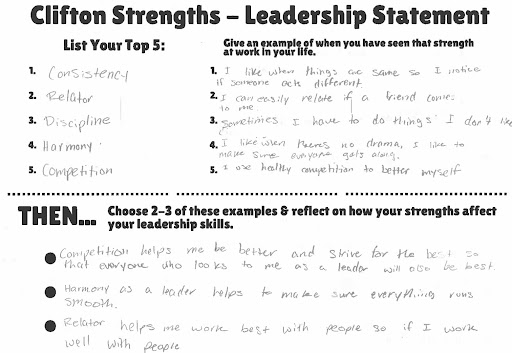 Clifton Strengths – Leadership Statement
List Your Top 5:
1. Consistency
2. Relator
3. Discipline
4. Harmony
5. Competition
Give an example of when you have seen that strength
at work in your life.
1. I like when things are same so I notice
if someone acts different
2. I can easily relate if a friend comes
to me
3. Sometimes I have to do things I don't like
4. I like when there's no drama, I like to
make sure everyone gets along.
5. I use healthy competition to better myself
THEN... Choose 2-3 of these examples & reflect on how your strengths affect
your leadership skills.
Competition helps me be better and strive for the best so
that everyone who looks to me as a leader will also be best.
Harmony as a leader helps to make sure everything runs
smooth.
Relator helps me work best with people so if I work
well with people